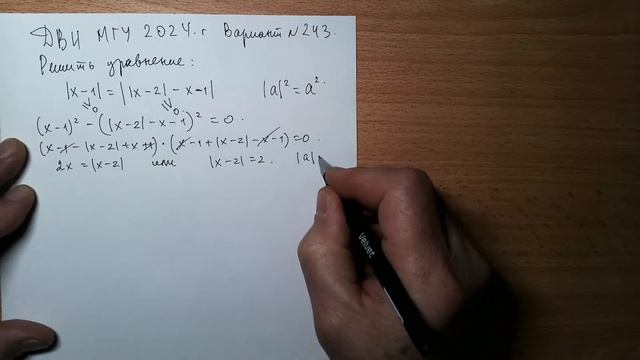 ДВИ МГУ 2024 г Вариант № 243.
Решить уравнение:
|x-1| = ||x-2| - x-1| |a|² = a².
≥0 ≥0
(x-1)² - (|x-2| - x-1)² = 0.
(x-1-|x-2|+x+1)·(x-1+|x-2|-x-1)=0.
2x = |x-2| или |x-2| = 2. |a|
Velvet